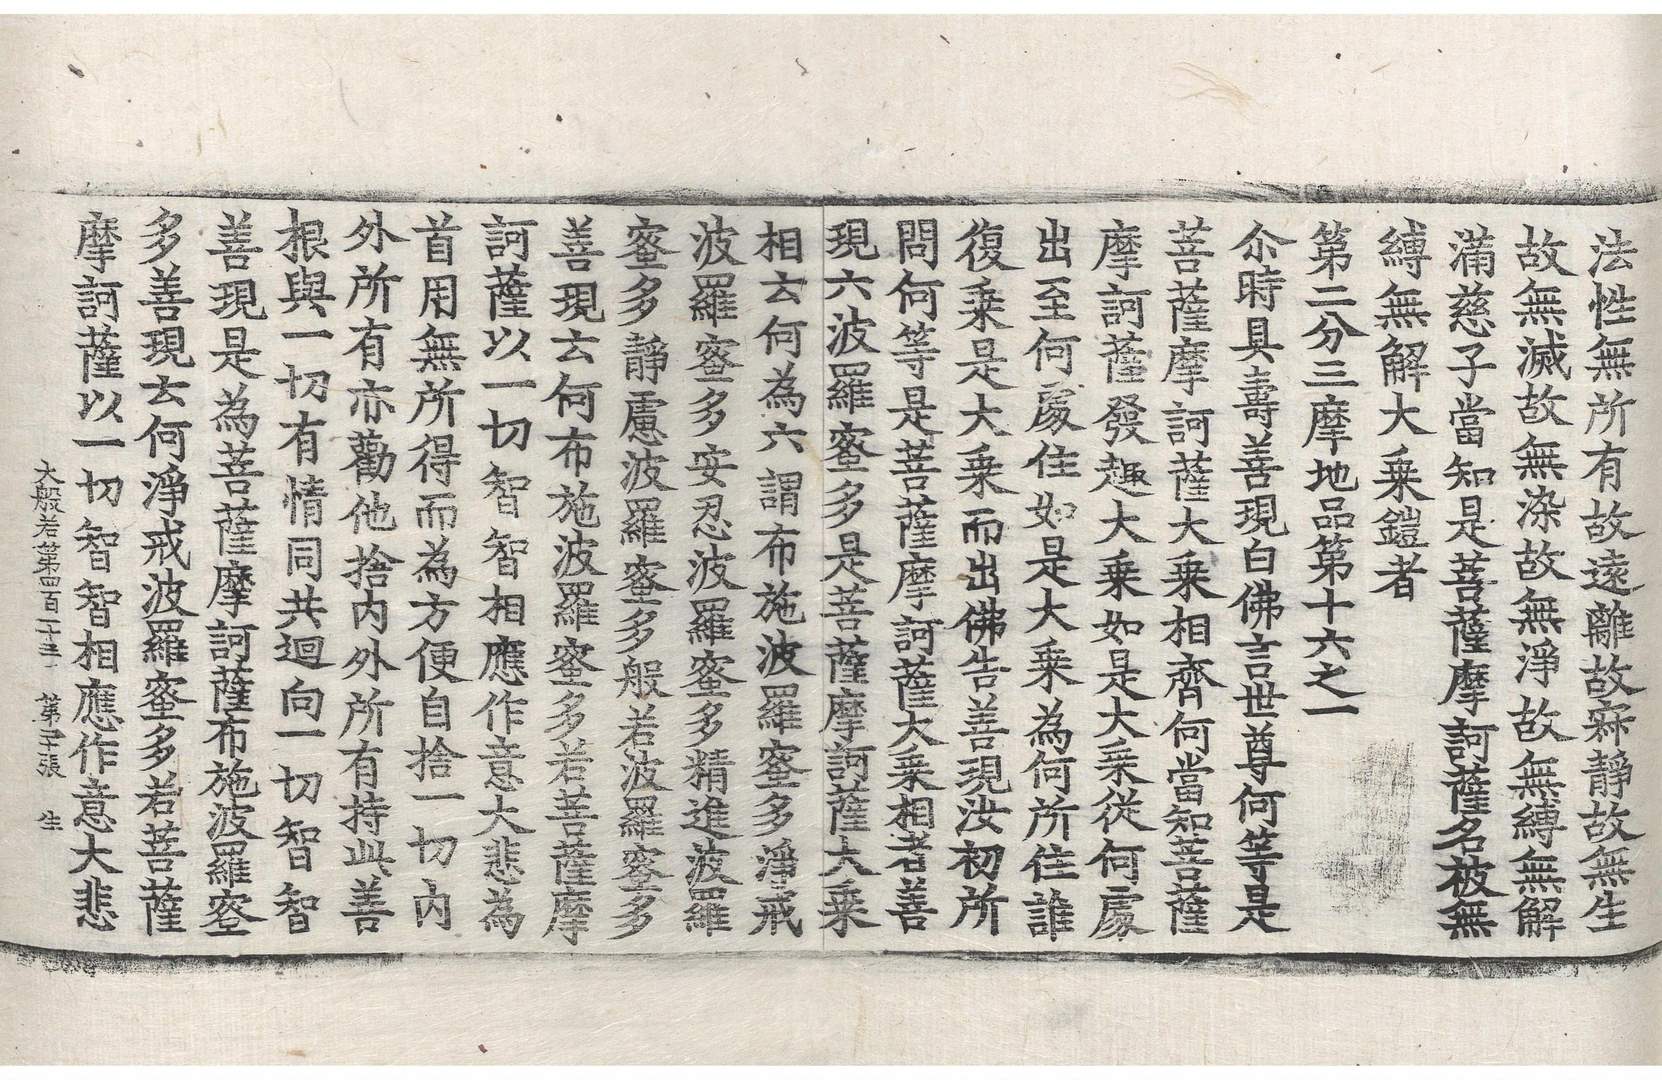 法性無所有故遠離故寂靜故無生
故無滅故無染故無淨故無縛無解
滿慈子當知是菩薩摩訶薩名被無
縛無解大乘鎧者
第二分三摩地品第十六之一
尒時具壽善現白佛言世尊何等是
菩薩摩訶薩大乘相齊何當知菩薩
摩訶薩發趣大乘如是大乘從何處
出至何處住如是大乘為何所住誰
復乘是大乘而出佛告善現汝初所
問何等是菩薩摩訶薩大乘相者善
現六波羅蜜多是菩薩摩訶薩大乘
相云何為六謂布施波羅蜜多淨戒
波羅蜜多安忍波羅蜜多精進波羅
蜜多靜慮波羅蜜多般若波羅蜜多
善現云何布施波羅蜜多若菩薩摩
訶薩以一切智智相應作意大悲為
首用無所得而為方便自捨一切內
外所有亦勸他捨內外所有持此善
根與一切有情同共迴向一切智智
善現是為菩薩摩訶薩布施波羅蜜
多善現云何淨戒波羅蜜多若菩薩
摩訶薩以一切智智相應作意大悲
大般若第四百一十三 第 張 生